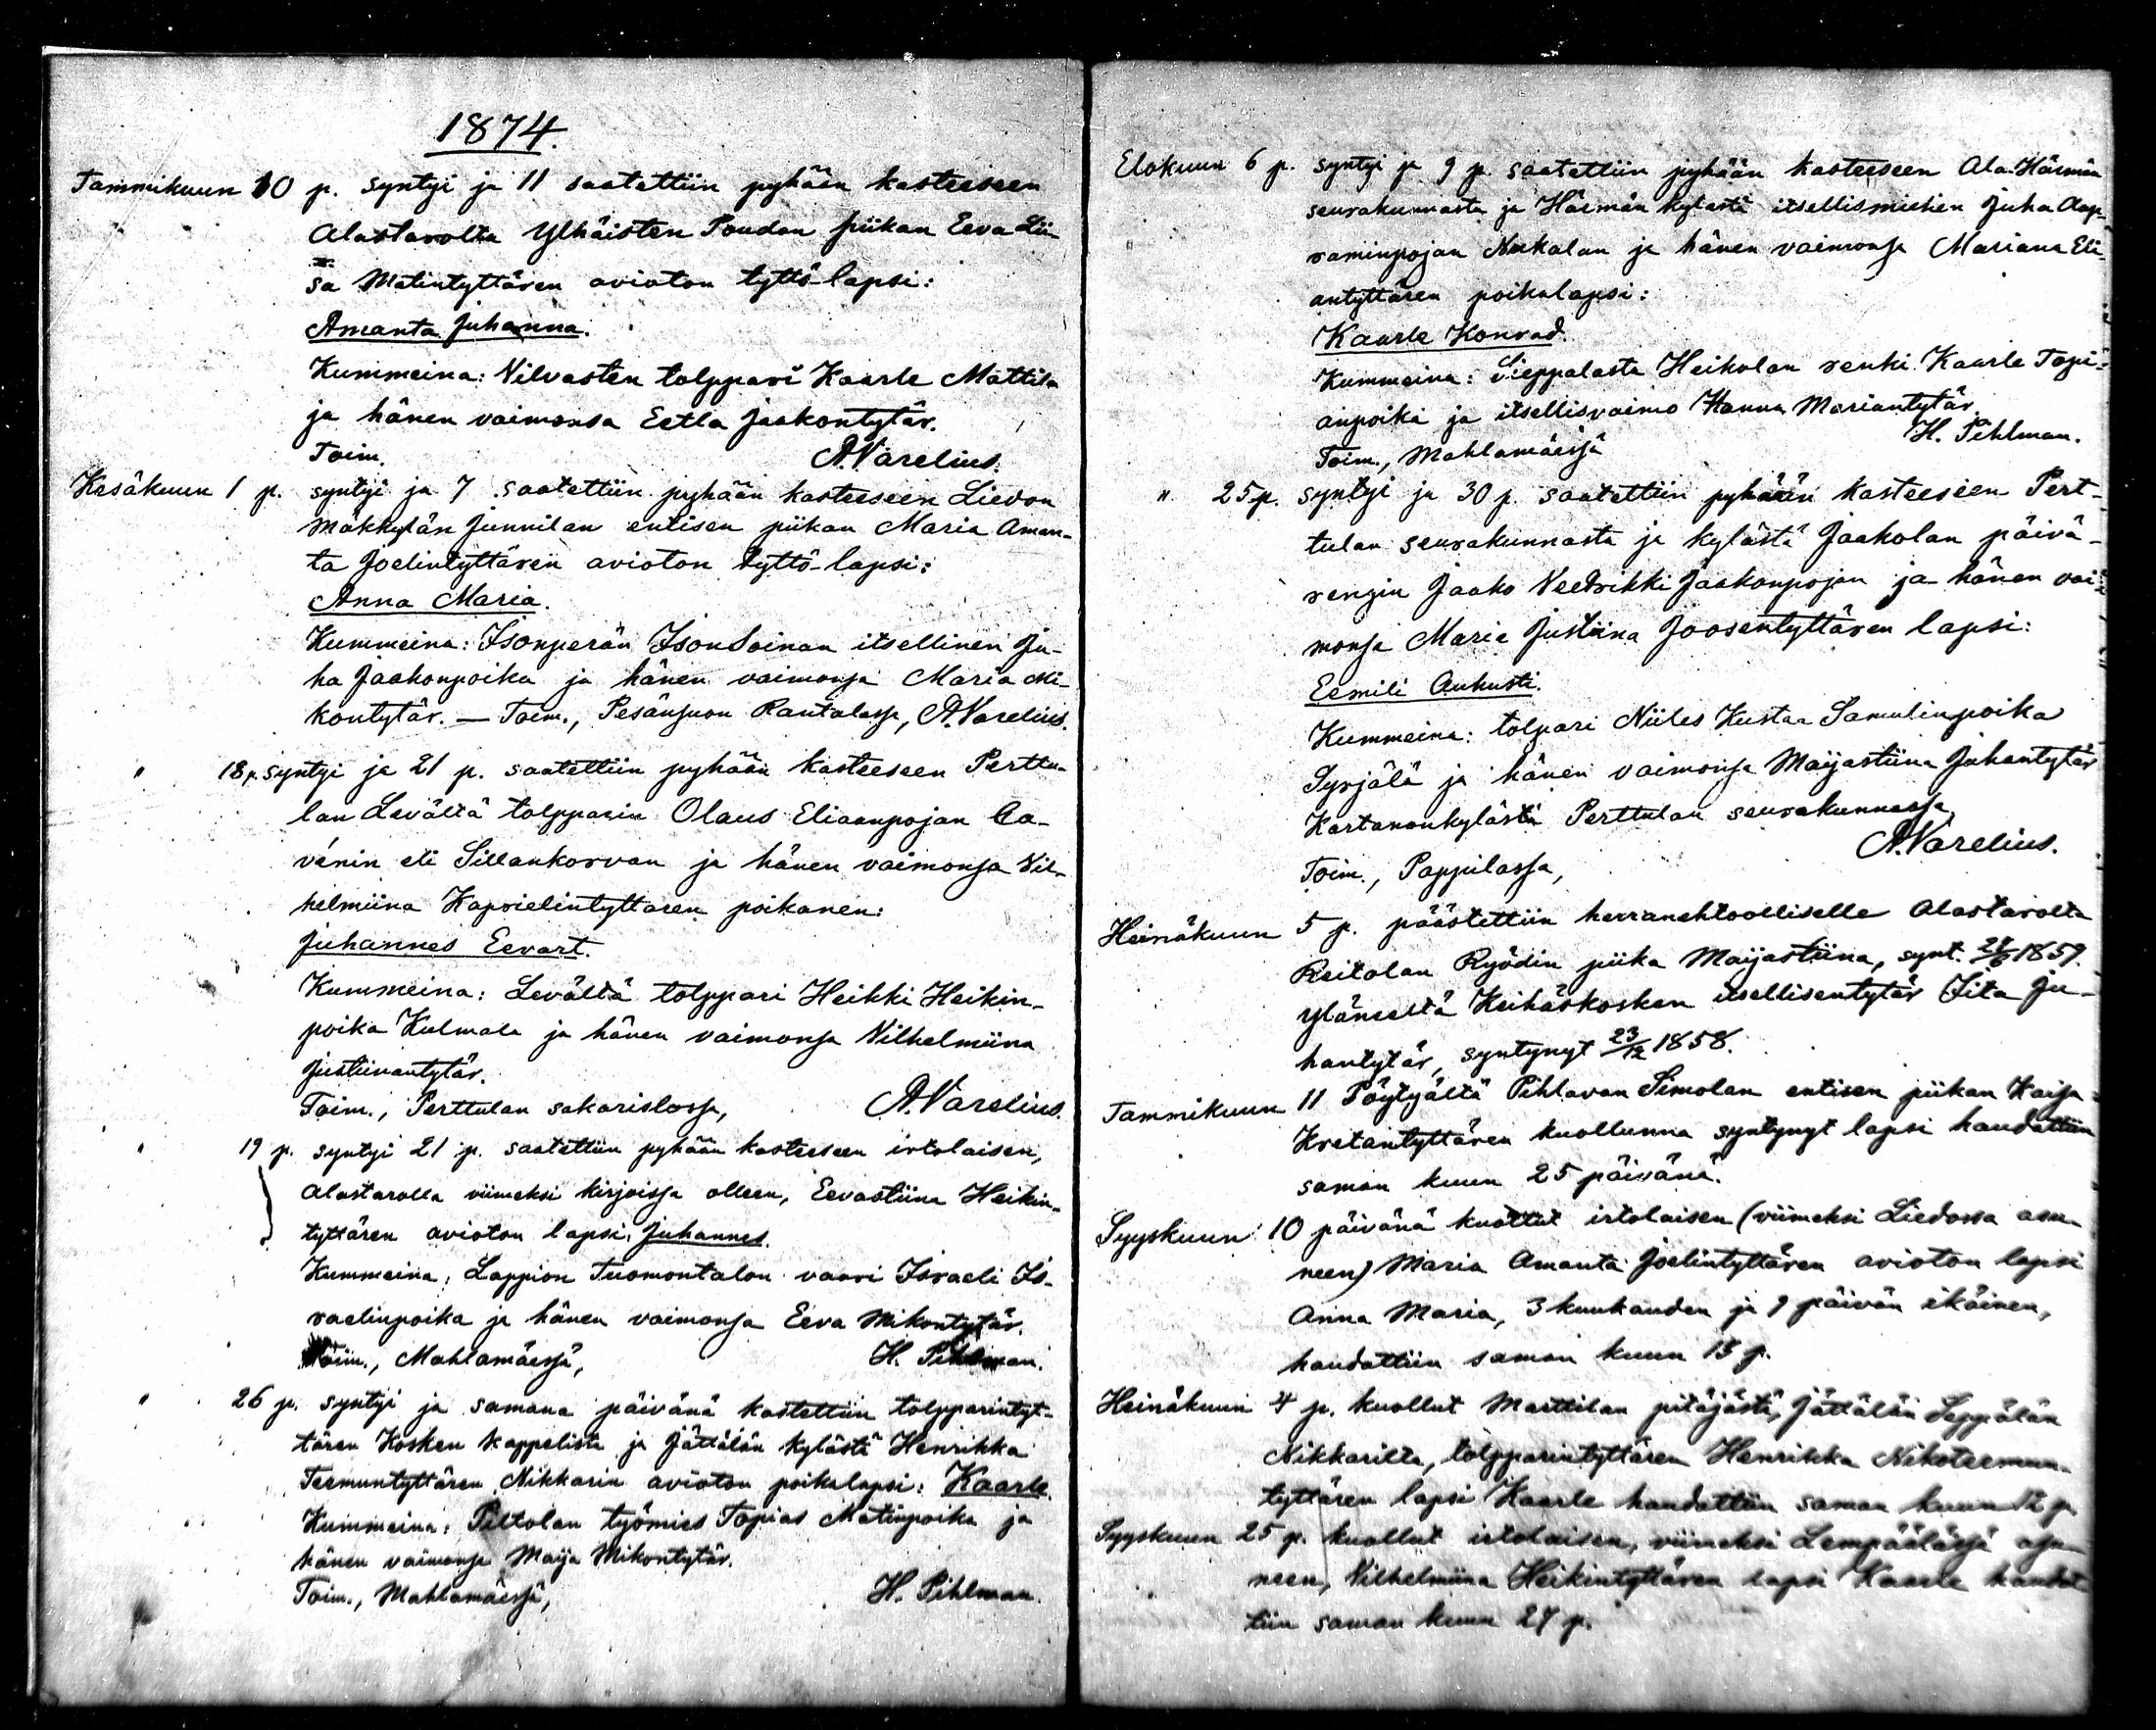 1874.
Tammikuun 10 p. syntyi ja 11 saatettiin pyhään kasteeseen
Alastarolta Ylhäisten Poudan piikan Eeva Lii-
sa Matintyttären avioton tyttö-lapsi:
Amanta Juhanna.
Kummeina: Vilvasten tolppari Kaarle Mattila
ja hänen vaimonsa Eetla Jaakontytär.
Toim. A. Varelius.
Kesäkuun 1 p. syntyi ja 7 saatettiin pyhään kasteeseen Liedon
Mäkkylän Junnilan entisen piikan Maria Aman-
ta Joelintyttären avioton tyttö-lapsi:
Anna Maria.
Kummeina: Isonperän IsonSoinan itsellinen Ju-
ha Jaakonpoika ja hänen vaimonsa Maria Mi-
kontytär. — Toim., Pesänsuon Rantalassa, A. Varelius.
" 18 p. syntyi ja 21 p. saatettiin pyhään kasteeseen Perttu-
lan Levältä tolpparin Olaus Eliaanpojan
eli Sillankorvan ja hänen vaimonsa Vil-
helmiina Kaprielintyttären poikanen:
Juhannes Eevart.
Kummeina: Levältä tolppari Heikki Heikin-
poika Kulmala ja hänen vaimonsa Vilhelmiina
Justiinantytär.
Toim., Perttulan sakaristossa, A. Varelius.
" 19 p. syntyi 21 p. saatettiin pyhään kasteeseen irtolaisen,
Alastarolla viimeksi kirjoissa olleen, Eevastiina Heikin-
tyttären avioton lapsi, Juhannes.
Kummeina: Lappion Tuomontalon vaari Israeli Is-
raelinpoika ja hänen vaimonsa Eeva Mikontytär.
Toim., Mahlamäessä, H. Pihlman.
" 26 p. syntyi ja samana päivänä kastettiin tolpparintyt-
tären Kosken kappelista ja Jättälän kylästä Henrikka
Teemuntyttären Nikkarin avioton poikalapsi: Kaarle.
Kummeina: Peltolan työmies Topias Matinpoika ja
hänen vaimonsa Maija Mikontytär.
Toim., Mahlamäessä, H. Pihlman.
Elokuun 6 p. syntyi ja 9 p. saatettiin pyhään kasteeseen Ala-Härmän
seurakunnasta ja Härmän kylästä itsellismiehen Juha Aap-
raminpojan ja hänen vaimonsa Mariana Eli-
antyttären poikalapsi:
Kaarle Konrad.
Kummeina: Sieppalasta Heikolan renki Kaarle Topi-
anpoika ja itsellisvaimo Hanna Mariantytär.
Toim., Mahlamäessä H. Pihlman.
" 25 p. syntyi ja 30 p. saatettiin pyhään kasteeseen Pert-
tulan seurakunnasta ja kylästä Jaakolan päivä-
rengin Jaako Veedrikki Jaakonpojan ja hänen vai-
monsa Maria Justiina Joosentyttären lapsi:
Eemili Aukusti.
Kummeina: tolpari Niiles Kustaa Samulinpoika
Syrjälä ja hänen vaimonsa Maijastiina Juhantytär
Kartanonkylästä Perttulan seurakunnassa,
Toim., Pappilassa, A. Varelius.
Heinäkuun 5 p. päästettiin herranehtoolliselle Alastarolta
Reitolan Ryödin piika Maijastiina, synt. 1859.
Yläneeltä Keihäskosken itsellisentytär Iita Ju-
hantytär, syntynyt 23/12 1858.
Tammikuun 11 Pöytyältä Pihlavan Simolan entisen piikan Kaisa
Kretantyttären kuollunna syntynyt lapsi haudattiin
saman kuun 25 päivänä.
Syyskuun 10 päivänä kuollut irtolaisen (viimeksi Liedossa asu-
neen) Maria Amanta Joelintyttären avioton lapsi
Anna Maria, 3 kuukauden ja 9 päivän ikäinen,
haudattiin saman kuun 13 p.
Heinäkuun 4 p. kuollut Marttilan pitäjästä, Jättälän Seppälän
Nikkarilta, tolpparintyttären Henrikka Nikoteemun-
tyttären lapsi Kaarle haudattiin saman kuun 12 p.
Syyskuun 25 p. kuollut irtolaisen, viimeksi Lempäälässä asu-
neen, Vilhelmiina Heikintyttären lapsi Kaarle haudat-
tiin saman kuun 27 p.